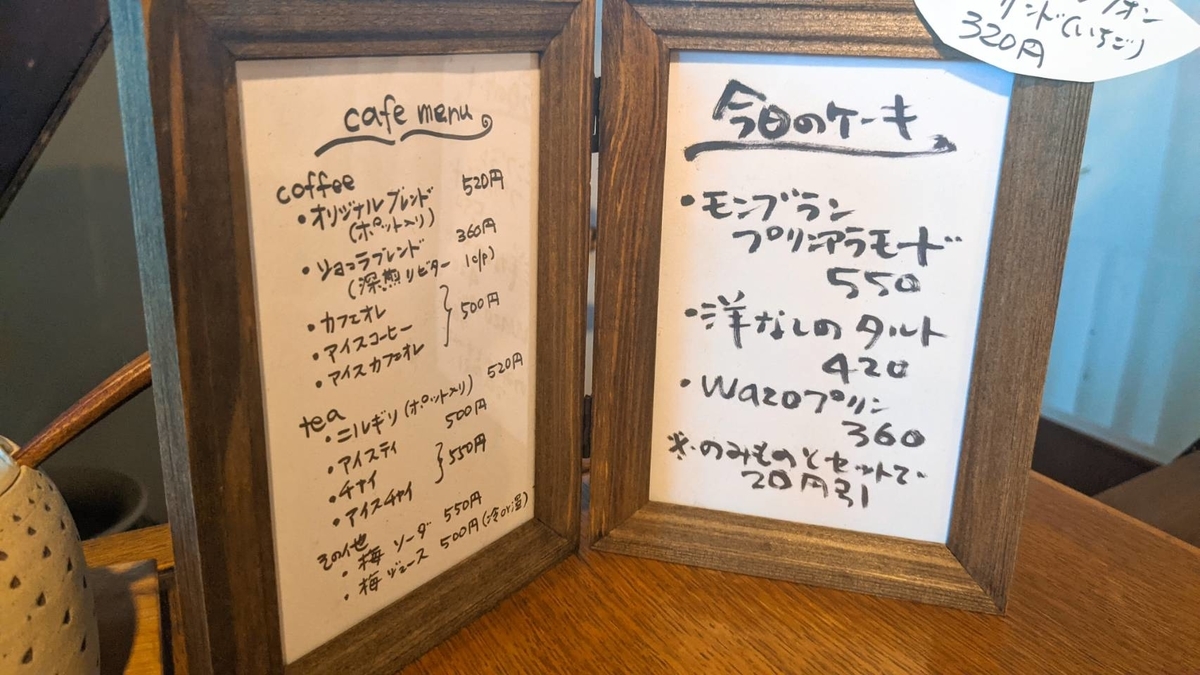 cafe menu
coffee
・オリジナルブレンド 520円
(ポット入り)
・ショコラブレンド 360円
(深煎りビター 1cup)
・カフェオレ
・アイスコーヒー } 500円
・アイスカフェオレ
tea
・ニルギリ(ポット入り) 520円
・アイスティ 500円
・チャイ
・アイスチャイ } 550円
その他
・梅ソーダ 550円
・梅ジュース 500円(冷or温)
今日のケーキ
・モンブラン
プリンアラモード
550
・洋なしのタルト
420
・wazoプリン
360
※のみものとセットで
20円引
オン
ンド(いちご)
320円